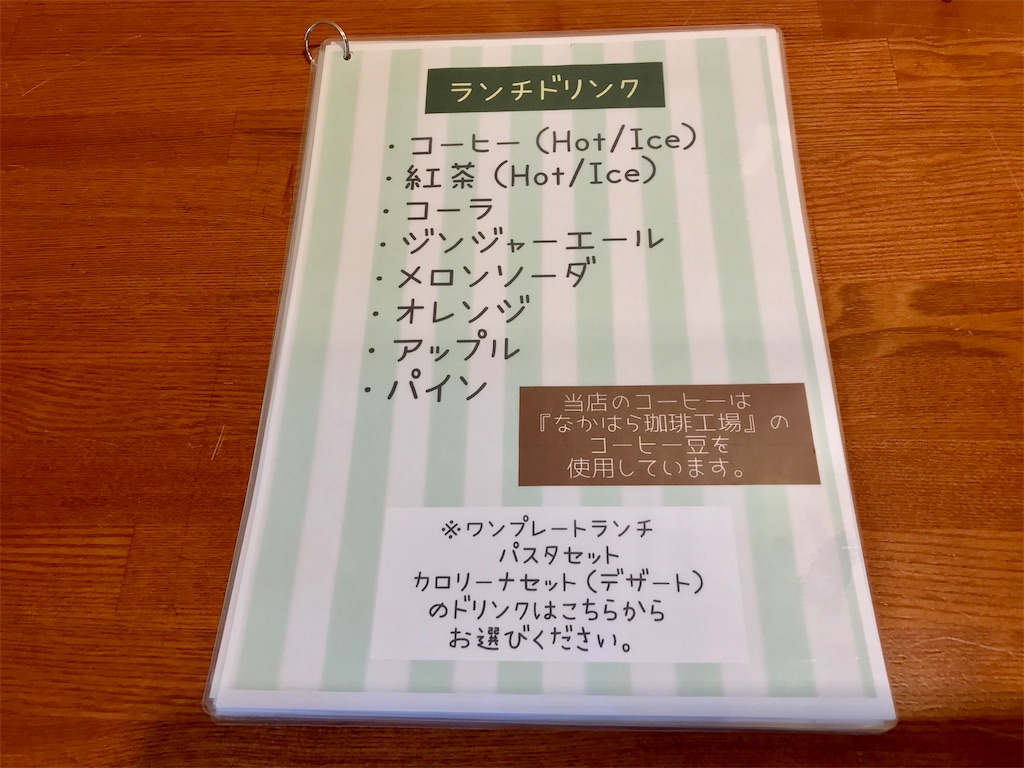 ランチドリンク
・コーヒー（Hot/Ice）
・紅茶（Hot/Ice）
・コーラ
・ジンジャーエール
・メロンソーダ
・オレンジ
・アップル
・パイン
当店のコーヒーは
『なかはら珈琲工場』の
コーヒー豆を
使用しています。
※ワンプレートランチ
パスタセット
カロリーナセット（デザート）
のドリンクはこちらから
お選びください。